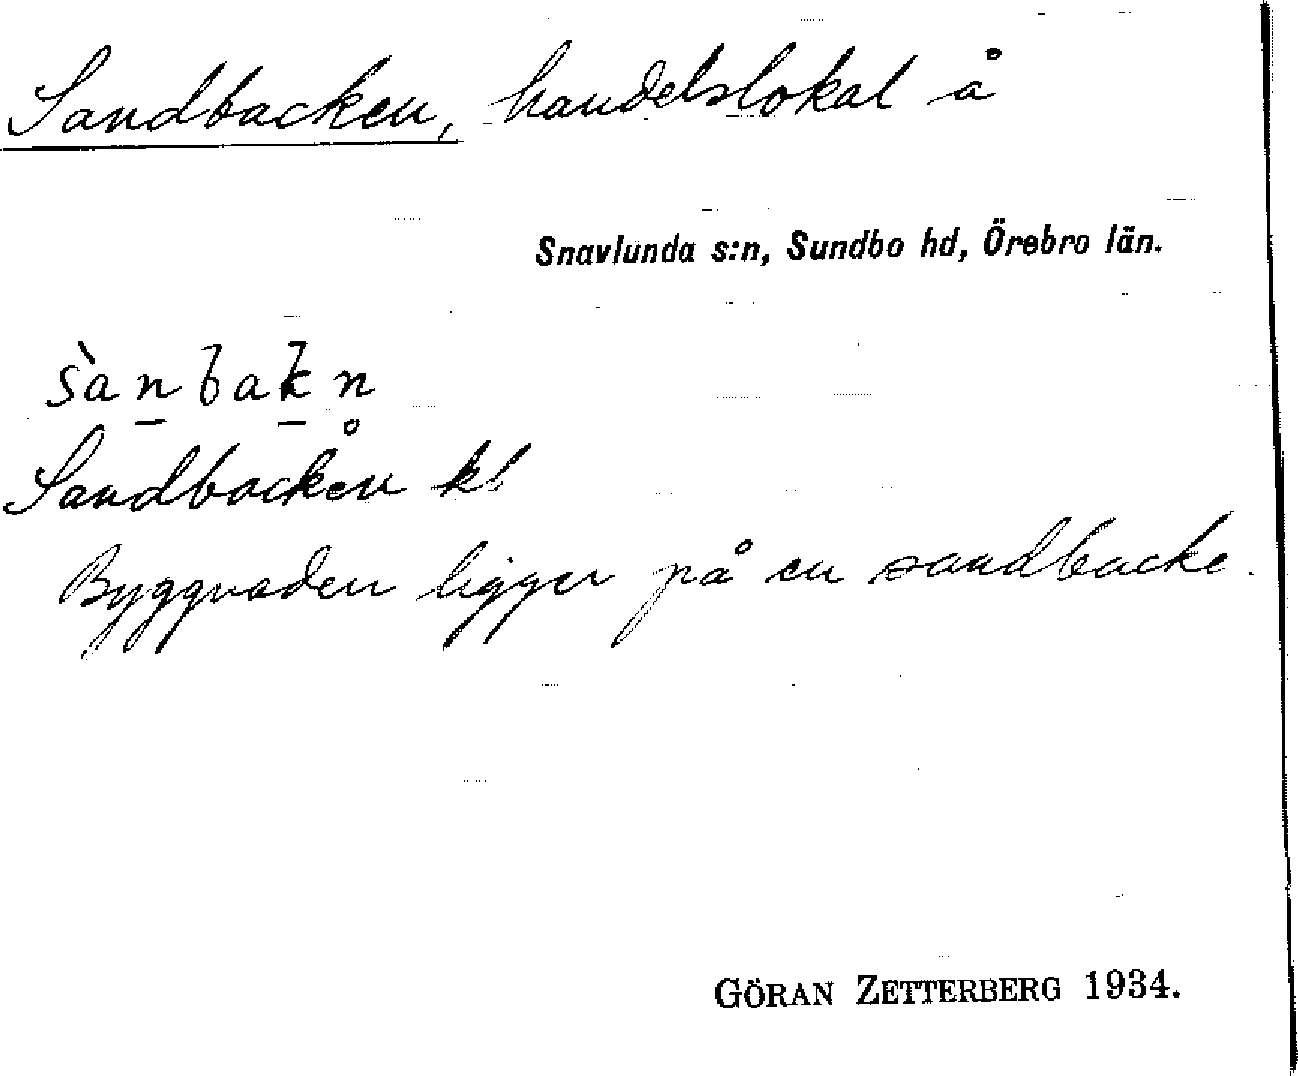 Sandbacken, handelslokal å
Snavlunda s:n, Sundbo hd, Örebro län.
sànbakn̥
Sandbacken kl
Byggnaden ligger på en sandbacke.
GÖRAN ZETTERBERG 1934.